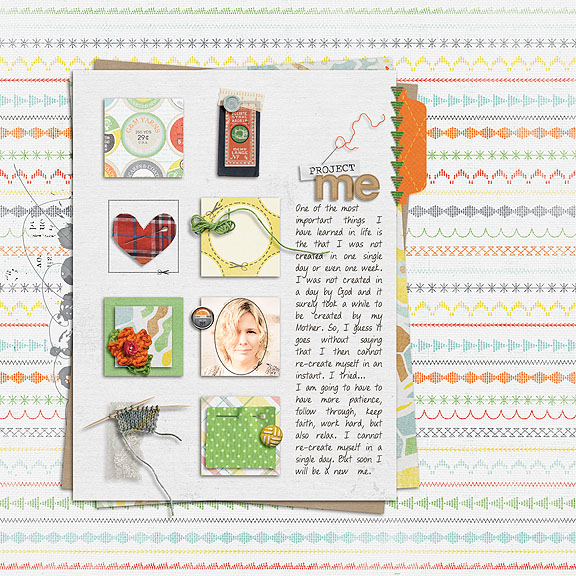 PROJECT
me
One of the most
important things I
have learned in life is
the that I was not
created in one single
day or even one week.
I was not created in
a day by God and it
surely took a while to
be created by my
Mother. So, I guess it
goes without saying
that I then cannot
re-create myself in an
instant. I tried...
I am going to have to
have more patience,
follow through, keep
faith, work hard, but
also relax. I cannot
re-create myself in a
single day. But soon I
will be a new me.
100 YDS
29¢